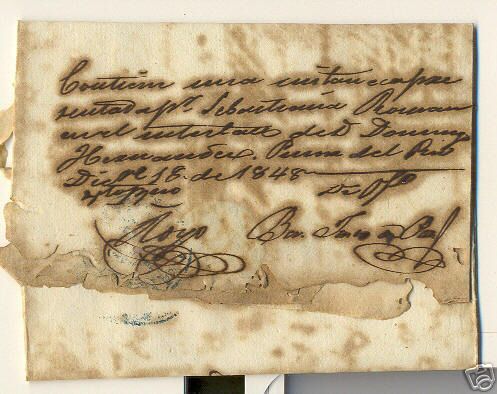 Contiene una instancia pre
sentada pr. Sebastiana Roman
en el intestato de Dn Domingo
Hernandez. Pinar del Rio
Dicre 18. de 1848
Royo